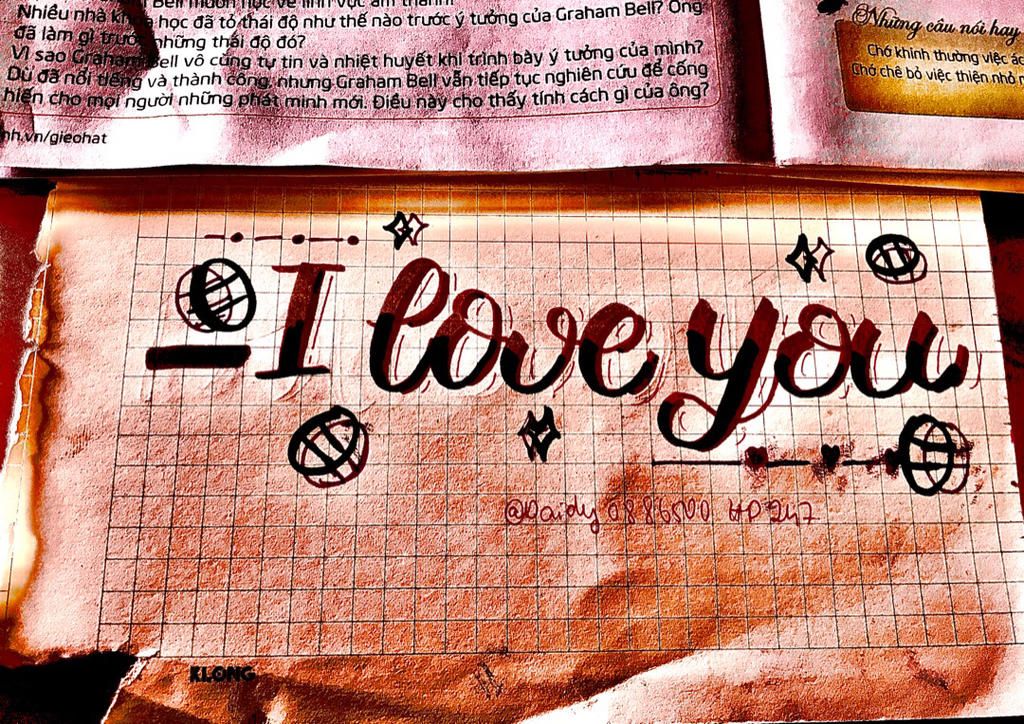 Bell muốn học về lĩnh vực âm thanh?
Nhiều nhà khoa học đã tỏ thái độ như thế nào trước ý tưởng của Graham Bell? Ông
đã làm gì trước những thái độ đó?
Vì sao Graham Bell vô cùng tự tin và nhiệt huyết khi trình bày ý tưởng của mình?
Dù đã nổi tiếng và thành công, nhưng Graham Bell vẫn tiếp tục nghiên cứu để cống
hiến cho mọi người những phát minh mới. Điều này cho thấy tính cách gì của ông?
nh.vn/gieohat
Những câu nói hay
Chớ khinh thường việc ác
Chớ chê bỏ việc thiện nhỏ
I love you
KLONG